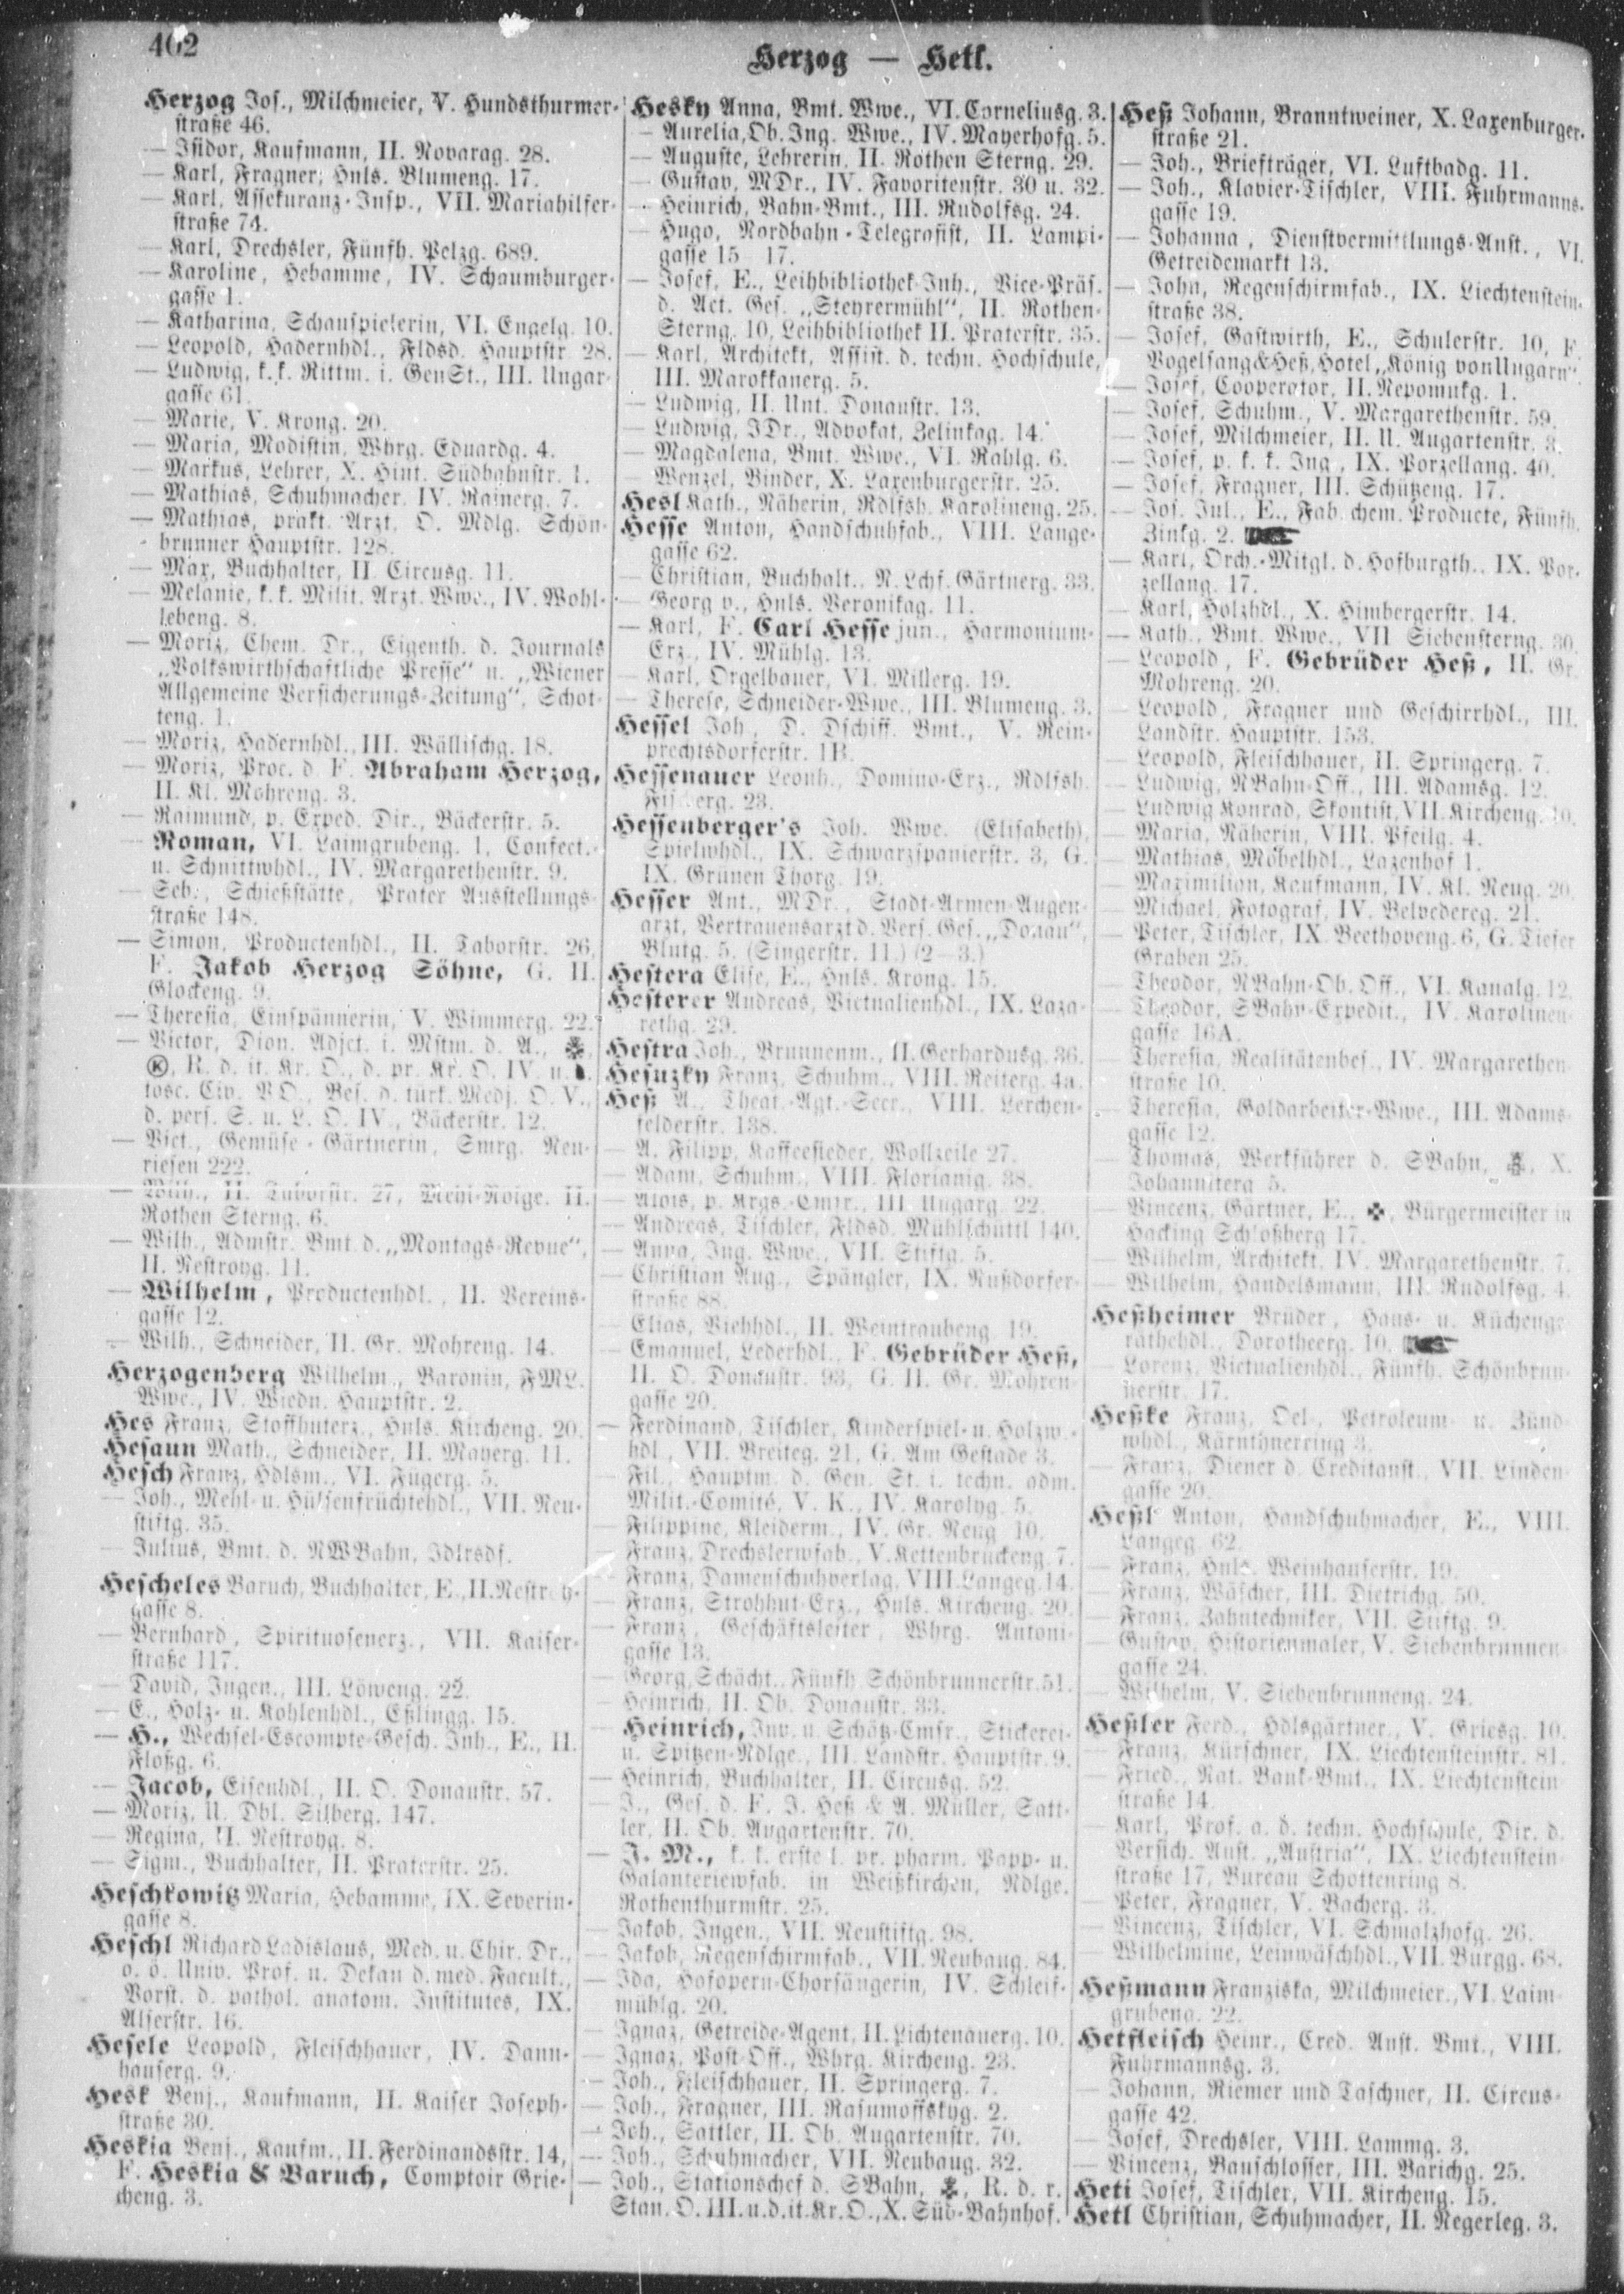 402
Herzog — Hetl.
Herzog Jos., Milchmeier, V. Hundsthurmer-
straße 46.
— Isidor, Kaufmann, II. Novarag. 28.
— Karl, Fragner, Hnls. Blumeng. 17.
— Karl, Assekuranz-Insp., VII. Mariahilfer-
straße 74.
— Karl, Drechsler, Fünfh. Pelzg. 689.
— Karoline, Hebamme, IV. Schaumburger-
gasse 1.
— Katharina, Schauspielerin, VI. Engelg. 10.
— Leopold, Hadernhdl., Fldsd. Hauptstr 28.
— Ludwig, k. k. Rittm. i. GenSt., III. Ungar-
gasse 61.
— Marie, V. Krong. 20.
— Maria, Modistin, Whrg. Eduardg. 4.
— Markus, Lehrer, X. Hint. Südbahnstr. 1.
— Mathias, Schuhmacher. IV. Rainerg. 7.
— Mathias, prakt. Arzt. O. Mdlg. Schön-
brunner Hauptstr. 128.
— Max, Buchhalter, II Circusg. 11.
— Melanie, k. k. Milit. Arzt. Wwe., IV. Wohl-
lebeng. 8.
— Moriz, Chem. Dr., Eigenth. d. Journals
„Volkswirthschaftliche Presse" u. „Wiener
Allgemeine Versicherungs-Zeitung", Schot-
teng. 1.
— Moriz, Hadernhdl., III. Wällischg. 18.
— Moriz, Proc. d. F. Abraham Herzog,
II. Kl. Mohreng. 3.
— Raimund, p. Exped. Dir., Bäckerstr. 5.
— Roman, VI. Laimgrubeng. 1, Confect.-
u. Schnittwhdl., IV. Margarethenstr. 9.
— Seb., Schießstätte, Prater Ausstellungs-
straße 148.
— Simon, Productenhdl., II. Taborstr. 26,
F. Jakob Herzog Söhne, G. II.
Glockeng. 9.
— Theresia, Einspännerin, V. Wimmerg. 22.
— Victor, Dion. Adjct. i. Mstm. d. A.,
Ⓚ, R. d. it. Kr. O., d. pr. Kr. O. IV. u.
tosc. Civ. VO., Bes. d. türk. Medj. O. V.,
d. pers. S. u. L. O. IV., Bäckerstr. 12.
— Vict., Gemüse-Gärtnerin, Smrg. Neu-
riesen 222.
— Wilh., II. Taborstr. 27, Mehl-Ndlge. II.
Rothen Sterng. 6.
— Wilh., Admstr. Bmt. d. „Montags-Revue",
II. Nestroyg. 11.
— Wilhelm, Productenhdl., II. Vereins-
gasse 12.
— Wilh., Schneider, II. Gr. Mohreng. 14.
Herzogenberg Wilhelm., Baronin, FML.
Wwe., IV. Wiedn. Hauptstr. 2.
Hes Franz, Stoffhuterz., Hnls. Kircheng. 20.
Hesaun Math., Schneider, II. Mayerg. 11.
Hesch Franz, Hdlsm., VI. Fügerg. 5.
— Joh., Mehl- u. Hülsenfrüchtehdl., VII. Neu-
stiftg. 35.
— Julius, Bmt. d. NWBahn, Jdlrsdf.
Hescheles Baruch, Buchhalter, E., II. Nestroy-
gasse 8.
— Bernhard, Spirituosenerz., VII. Kaiser-
straße 117.
— David, Ingen., III. Löweng. 22.
— E., Holz- u. Kohlenhdl., Eßlingg. 15.
— H., Wechsel-Escompte-Gesch. Inh., E., II.
Floßg. 6.
— Jacob, Eisenhdl., II. O. Donaustr. 57.
— Moriz, U. Dbl. Silberg. 147.
— Regina, II. Nestroyg. 8.
— Sigm., Buchhalter, II. Praterstr. 25.
Heschkowitz Maria, Hebamme, IX. Severin-
gasse 8.
Heschl Richard Ladislaus, Med. u. Chir. Dr.,
o. ö. Univ. Prof. u. Dekan d. med. Facult.,
Vorst. d. pathol. anatom. Institutes, IX.
Alserstr. 16.
Hesele Leopold, Fleischhauer, IV. Dann-
hauserg. 9.
Hesk Benj., Kaufmann, II. Kaiser Joseph-
straße 30.
Heskia Benj., Kaufm., II. Ferdinandsstr. 14,
F. Heskia & Baruch, Comptoir Grie-
cheng. 3.
Hesky Anna, Bmt. Wwe., VI. Corneliusg. 3.
— Aurelia, Ob. Ing. Wwe., IV. Mayerhofg. 5.
— Auguste, Lehrerin, II. Rothen Sterng. 29.
— Gustav, MDr., IV. Favoritenstr. 30 u. 32.
— Heinrich, Bahn-Bmt., III. Rudolfsg. 24.
— Hugo, Nordbahn-Telegrafist, II. Lampi-
gasse 15 17.
— Josef, E., Leihbibliothek-Inh., Vice-Präs.
d. Act. Ges. „Steyrermühl", II. Rothen-
Sterng. 10, Leihbibliothek II. Praterstr. 35.
— Karl, Architekt, Assist. d. techn. Hochschule,
III. Marokkanerg. 5.
— Ludwig, II. Unt. Donaustr. 13.
— Ludwig, JDr., Advokat, Zelinkag. 14.
— Magdalena, Bmt. Wwe., VI. Rahlg. 6.
— Wenzel, Binder, X. Laxenburgerstr. 25.
Hesl Kath., Näherin, Rdlfsh. Karolineng. 25.
Hesse Anton, Handschuhfab., VIII. Lange-
gasse 62.
— Christian, Buchhalt., N. Lchf. Gärtnerg. 33.
— Georg v., Hnls. Veronikag. 11.
— Karl, F. Carl Hesse jun., Harmonium-
Erz., IV. Mühlg. 13.
— Karl, Orgelbauer, VI. Millerg. 19.
— Therese, Schneider-Wwe., III. Blumeng. 3.
Hessel Joh., D. Dschiff. Bmt., V. Rein-
prechtsdorferstr. 1B.
Hessenauer Leonh., Domino-Erz., Rdlfsh.
23.
Hessenberger's Joh. Wwe. (Elisabeth),
Spielwhdl., IX. Schwarzspanierstr. 3, G.
IX. Grünen Thorg. 19.
Hesser Ant., MDr., Stadt-Armen-Augen-
arzt, Vertrauensarzt d. Vers. Ges. „Donau",
Blutg. 5. (Singerstr. 11.) (2—3.)
Hestera Elise, E., Hnls. Krong. 15.
Hesterer Andreas, Victualienhdl., IX. Laza-
rethg. 29.
Hestra Joh., Brunnenm., II. Gerhardusg. 36.
Hesuzky Franz, Schuhm., VIII. Reiterg. 4a.
Heß A., Theat.-Agt.-Secr., VIII. Lerchen-
felderstr. 138.
— A. Filipp, Kaffeesieder, Wollzeile 27.
— Adam, Schuhm., VIII. Florianig. 38.
— Alois, p. Krgs.-Cmsr., III. Ungarg. 22.
— Andreas, Tischler, Fldsd. Mühlschüttl 140.
— Anna, Ing. Wwe., VII. Stiftg. 5.
— Christian Aug., Spängler, IX. Nußdorfer-
straße 88.
— Elias, Viehhdl., II. Weintraubeng. 19.
— Emanuel, Lederhdl., F. Gebrüder Heß,
II. O. Donaustr. 93, G. II. Gr. Mohren-
gasse 20.
— Ferdinand, Tischler, Kinderspiel- u. Holzw.-
hdl., VII. Breiteg. 21, G. Am Gestade 3.
— Fil., Hauptm. d. Gen. St. i. techn. adm.
Milit.-Comité, V. K., IV. Karolyg. 5.
— Filippine, Kleiderm., IV. Gr. Neug. 10.
— Franz, Drechslerwfab., V. Kettenbrückeng. 7.
— Franz, Damenschuhverlag, VIII. Langeg. 14.
— Franz, Strohhut-Erz., Hnls. Kircheng. 20.
— Franz, Geschäftsleiter, Whrg. Antoni-
gasse 13.
— Georg, Schächt., Fünfh. Schönbrunnerstr. 51.
— Heinrich, II. Ob. Donaustr. 33.
— Heinrich, Inv. u. Schätz-Cmsr., Stickerei-
u. Spitzen-Ndlge., III. Landstr. Hauptstr. 9.
— Heinrich, Buchhalter, II. Circusg. 52.
— J., Ges. d. F. J. Heß & A. Müller, Satt-
ler, II. Ob. Augartenstr. 70.
— J. M., k. k. erste l. pr. pharm. Papp- u.
Galanteriewfab. in Weißkirchen, Ndlge.
Rothenthurmstr. 25.
— Jakob, Ingen., VII. Neustiftg. 98.
— Jakob, Regenschirmfab., VII. Neubaug. 84.
— Ida, Hofopern-Chorsängerin, IV. Schleif-
mühlg. 20.
— Ignaz, Getreide-Agent, II. Lichtenauerg. 10.
— Ignaz, Post-Off., Whrg. Kircheng. 23.
— Joh., Fleischhauer, II. Springerg. 7.
— Joh., Fragner, III. Rasumoffskyg. 2.
— Joh., Sattler, II. Ob. Augartenstr. 70.
— Joh., Schuhmacher, VII. Neubaug. 32.
— Joh., Stationschef d. SBahn, R. d. r.
Stan. O. III. u. d. it. Kr. O., X. Süd-Bahnhof.
Heß Johann, Branntweiner, X. Laxenburger-
straße 21.
— Joh., Briefträger, VI. Luftbadg. 11.
— Joh., Klavier-Tischler, VIII. Fuhrmanns-
gasse 19.
— Johanna, Dienstvermittlungs-Anst., VI.
Getreidemarkt 13.
— John, Regenschirmfab., IX. Liechtenstein-
straße 38.
— Josef, Gastwirth, E., Schulerstr. 10, F.
Vogelsang & Heß, Hotel „König von Ungarn".
— Josef, Cooperator, II. Nepomukg. 1.
— Josef, Schuhm., V. Margarethenstr. 59.
— Josef, Milchmeier, II. U. Augartenstr. 3.
— Josef, p. k. k. Ing., IX. Porzellang. 40.
— Josef, Fragner, III. Schützeng. 17.
— Jos. Jul., E., Fab. chem. Producte, Fünfh.
Zinkg. 2.
— Karl, Orch.-Mitgl. d. Hofburgth., IX. Por-
zellang. 17.
— Karl, Holzhdl., X. Himbergerstr. 14.
— Kath., Bmt. Wwe., VII Siebensterng. 30.
— Leopold, F. Gebrüder Heß, II. Gr.
Mohreng. 20.
— Leopold, Fragner und Geschirrhdl., III.
Landstr. Hauptstr. 153.
— Leopold, Fleischhauer, II. Springerg. 7.
— Ludwig, NBahn-Off., III. Adamsg. 12.
— Ludwig Konrad, Skontist, VII. Kircheng. 10.
— Maria, Näherin, VIII. Pfeilg. 4.
— Mathias, Möbelhdl., Lazenhof 1.
— Maximilian, Kaufmann, IV. Kl. Neug. 20.
— Michael, Fotograf, IV. Belvedereg. 21.
— Peter, Tischler, IX. Beethoveng. 6, G. Tiefer
Graben 25.
— Theodor, NBahn-Ob. Off., VI. Kanalg. 12.
— Theodor, SBahn-Expedit., IV. Karolinen-
gasse 16A.
— Theresia, Realitätenbes., IV. Margarethen-
straße 10.
— Theresia, Goldarbeiter-Wwe., III. Adams-
gasse 12.
— Thomas, Werkführer d. SBahn, X.
Johanniterg 5.
— Vincenz, Gärtner, E., Bürgermeister in
Hacking Schloßberg 17.
— Wilhelm, Architekt, IV. Margarethenstr. 7.
— Wilhelm, Handelsmann, III. Rudolfsg. 4.
Heßheimer Brüder, Haus- u. Küchenge-
räthehdl., Dorotheerg. 10.
— Lorenz, Victualienhdl., Fünfh. Schönbrun-
nerstr. 17.
Heßke Franz, Oel-, Petroleum- u. Zünd-
whdl., Kärnthnerring 3.
— Franz, Diener d. Creditanst., VII. Linden-
gasse 20.
Heßl Anton, Handschuhmacher, E., VIII.
Langeg. 62.
— Franz, Hnls. Weinhauserstr. 19.
— Franz, Wäscher, III. Dietrichg. 50.
— Franz, Zahntechniker, VII. Stiftg. 9.
— Gustav, Historienmaler, V. Siebenbrunnen-
gasse 24.
— Wilhelm, V. Siebenbrunneng. 24.
Heßler Ferd., Hdlsgärtner., V. Griesg. 10.
— Franz, Kürschner, IX. Liechtensteinstr. 81.
— Fried., Nat. Bank-Bmt., IX. Liechtenstein-
straße 14.
— Karl, Prof. a. d. techn. Hochschule, Dir. d.
Versich. Anst. „Austria", IX. Liechtenstein-
straße 17, Bureau Schottenring 8.
— Peter, Fragner, V. Bacherg. 3.
— Vincenz, Tischler, VI. Schmalzhofg. 26.
— Wilhelmine, Leinwäschhdl., VII. Burgg. 68.
Heßmann Franziska, Milchmeier., VI. Laim-
grubeng. 22.
Hetfleisch Heinr., Cred. Anst. Bmt., VIII.
Fuhrmannsg. 3.
— Johann, Riemer und Taschner, II. Circus-
gasse 42.
— Josef, Drechsler, VIII. Lammg. 3.
— Vincenz, Bauschlosser, III. Barichg. 25.
Heti Josef, Tischler, VII. Kircheng. 15.
Hetl Christian, Schuhmacher, II. Negerleg. 3.